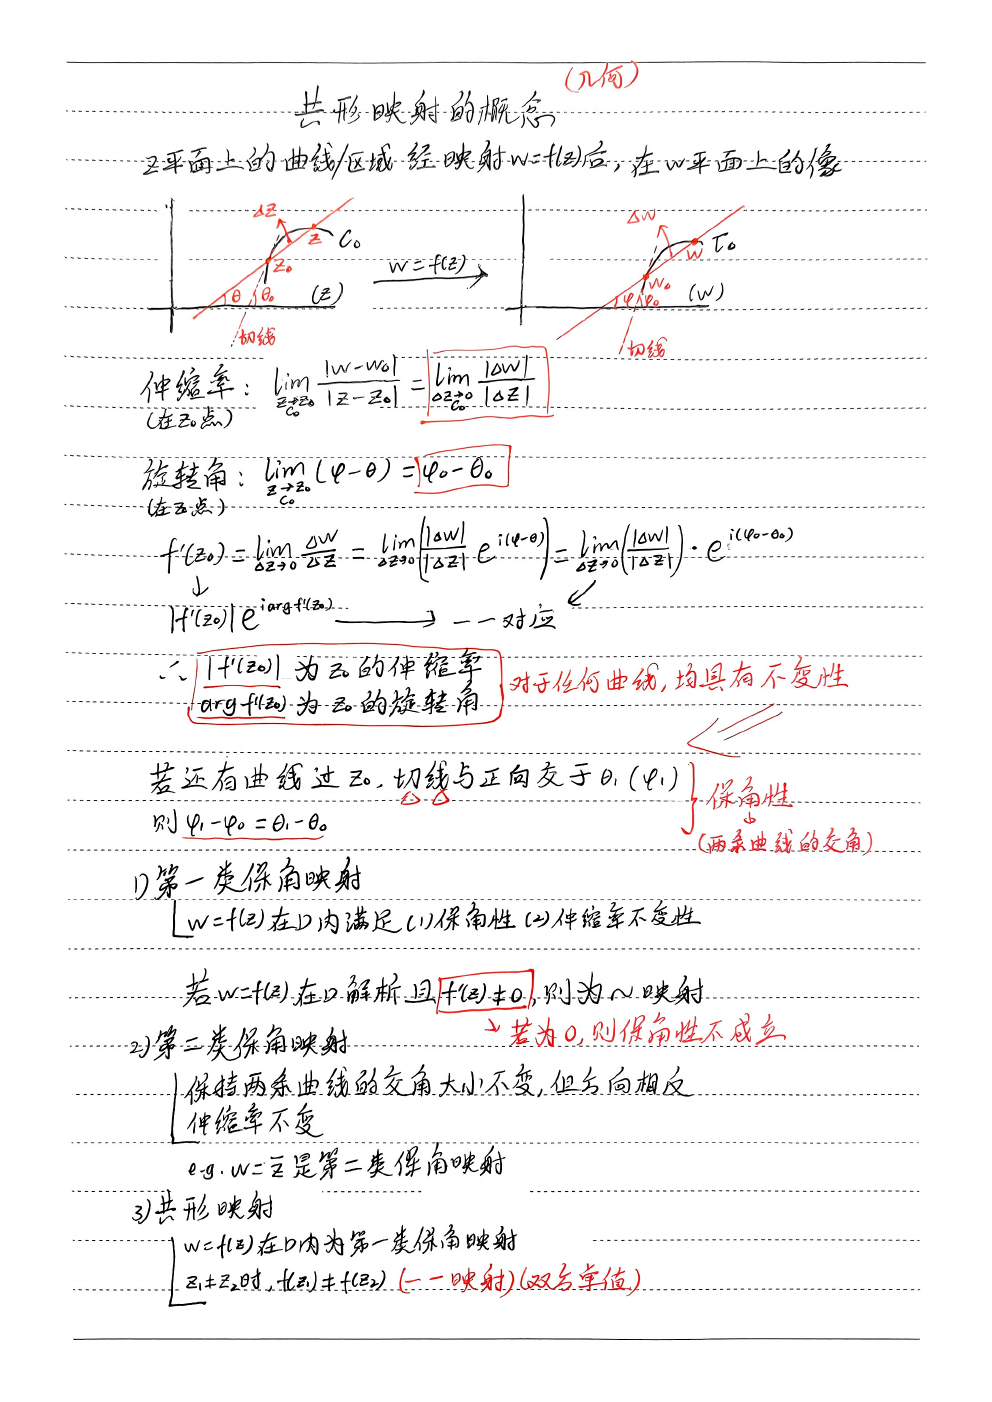 (几何)
共形映射的概念
z平面上的曲线/区域 经映射w=f(z)后,在w平面上的像
Δz z C₀ z₀ θ θ₀ (z) 切线
w=f(z)
Δw w Γ₀ w₀ φ φ₀ (w) 切线
伸缩率: lim_{z→z₀, C₀} |w-w₀|/|z-z₀| = lim_{Δz→0, C₀} |Δw|/|Δz|
(在z₀点)
旋转角: lim_{z→z₀, C₀} (φ-θ) = φ₀-θ₀
(在z₀点)
f'(z₀) = lim_{Δz→0} Δw/Δz = lim_{Δz→0} (|Δw|/|Δz| e^{i(φ-θ)}) = lim_{Δz→0} (|Δw|/|Δz|) · e^{i(φ₀-θ₀)}
↓
|f'(z₀)| e^{i arg f'(z₀)} → 一一对应
∴ |f'(z₀)| 为z₀的伸缩率
arg f'(z₀) 为z₀的旋转角
对于任何曲线,均具有不变性
若还有曲线过z₀,切线与正向交于θ₁(φ₁)
则 φ₁-φ₀=θ₁-θ₀
保角性
↓
(两条曲线的交角)
1)第一类保角映射
w=f(z)在D内满足 (1)保角性 (2)伸缩率不变性
若w=f(z)在D解析且 f'(z)≠0,则为~映射
↘若为0,则保角性不成立
2)第二类保角映射
保持两条曲线的交角大小不变,但方向相反
伸缩率不变
e.g. w=z̄ 是第二类保角映射
3)共形映射
w=f(z)在D内为第一类保角映射
z₁≠z₂时,f(z₁)≠f(z₂) (一一映射)(双方单值)